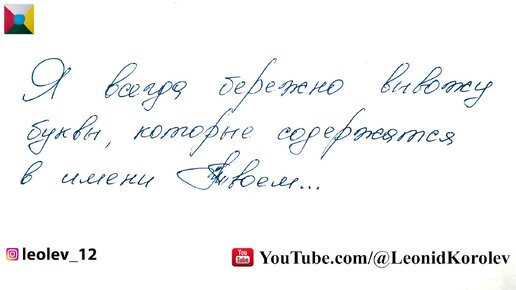 Я всегда бережно вывожу
буквы, которые содержатся
в имени Твоем...
leolev_12
YouTube.com/@LeonidKorolev
You
Tube